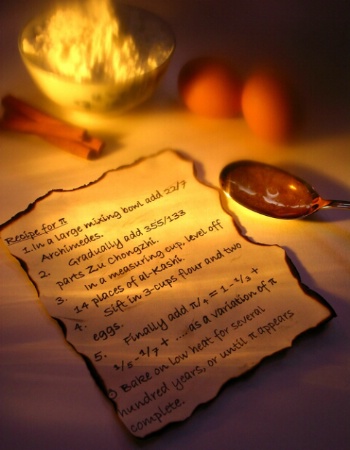 Recipe for π
1. In a large mining bowl add 22/7
Archimedes.
2. Gradually add 355/133
parts Zu Chongzhi.
3. In a measuring cup, level off
14 places of al-Kashi.
4. Sift in 3-cups flour and two
eggs.
5. Finally add π/4 = 1 - 1/3 +
1/5 - 1/7 + .....as a variation of π
Bake on low heat for several
hundred years, or until π appears
complete.